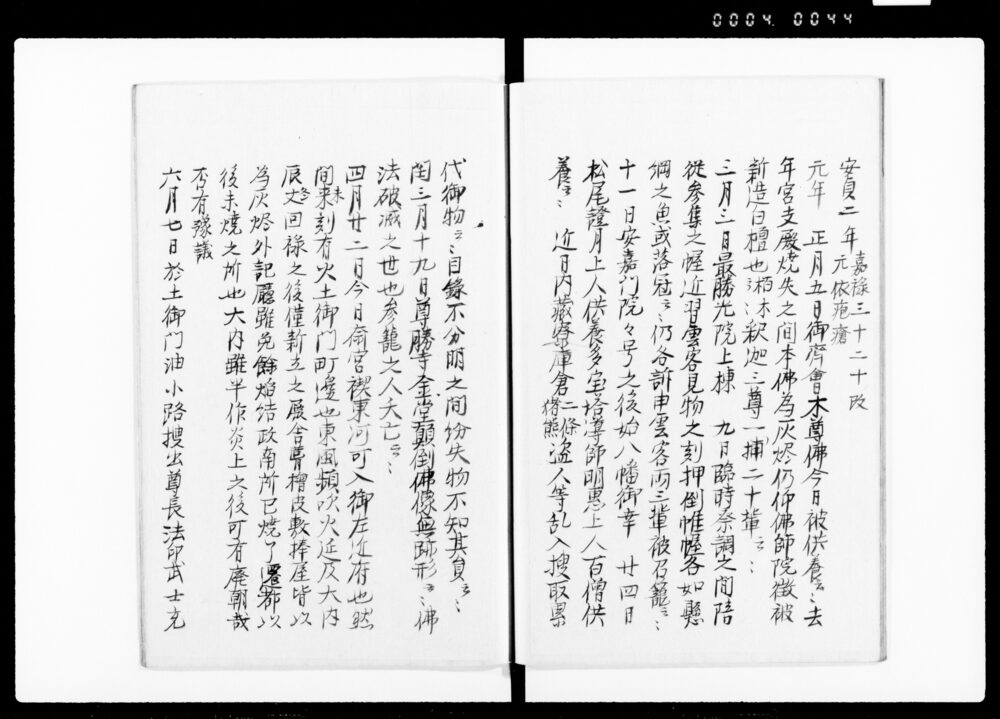 0004 0044
安貞二年 嘉禄三十二十改
元依疱瘡
元年 正月五日御齊會本尊佛今日被供養云々去
年宮支厩焼失之間本佛為灰烬仍仰佛師院徴被
新造白檀也栢木云々釈迦三尊一捕二十輩云々
三月三日最勝光院上棟 九日臨時祭調之間陪
従参集之幄近習雲客見物之刻押倒帷幄各如懸
綱之魚或落冠云々仍各訴申雲客両三輩被召籠云々
十一日安嘉門院々号之後始八幡御幸 廿四日
松尾證月上人供養多宝塔導師明恵上人百僧供
養云々 近日内藏寮庫倉二條猪熊盗人等乱入捜取累
代御物云々目録不分明之間紛失物不知其員云々
閏三月十九日尊勝寺金堂顛倒佛像無跡形云々佛
法破滅之世也参籠之人夭亡云々
四月廿二日今日齋宮禊東河可入御左近府也然
間未刻有火土御門町邊也東風頻吹火延及大内
辰文回禄之後僅新立之殿舎葺檜皮數棒屋皆以
為灰烬外記廳雖免餘焰結政南所已焼了遷都以
後未焼之所也大内雖半作炎上之後可有廃朝哉
否有豫議
六月七日於土御門油小路捜出尊長法印武士充